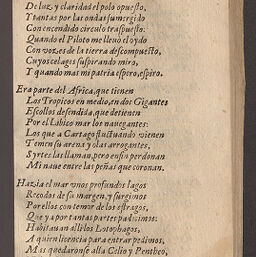 De luz, y claridad el polo opuesto,
Y tantas por las ondas sumergido
Con encendido circulo traspuesto:
Quando el Piloto me lleuò el oydo
Con vozes de la tierra descompuesto,
Cuyos celages suspirando miro,
Y quando mas mi patria espero, espiro.
Era parte del Africa, que tienen
Los Tropicos en medio, en dos Gigantes
Escollos defendida, que detienen
Por el Libico mar los nauegantes:
Los que a Cartago fluctuando vienen
Temen su arena y olas arrogantes,
Syrtes las llaman, pero en fin perdonan
Mi naue entre las peñas que coronan.
Hazia el mar vnos profundos lagos
Recodos de su margen, y surgimos
Por ellos con temor de los estragos,
Que ya por tantas partes padimos:
Habitauan alli los Lotophagos,
A quien licencia para entrar pedimos,
Mas quedaronse alla Celio y Pentheo,